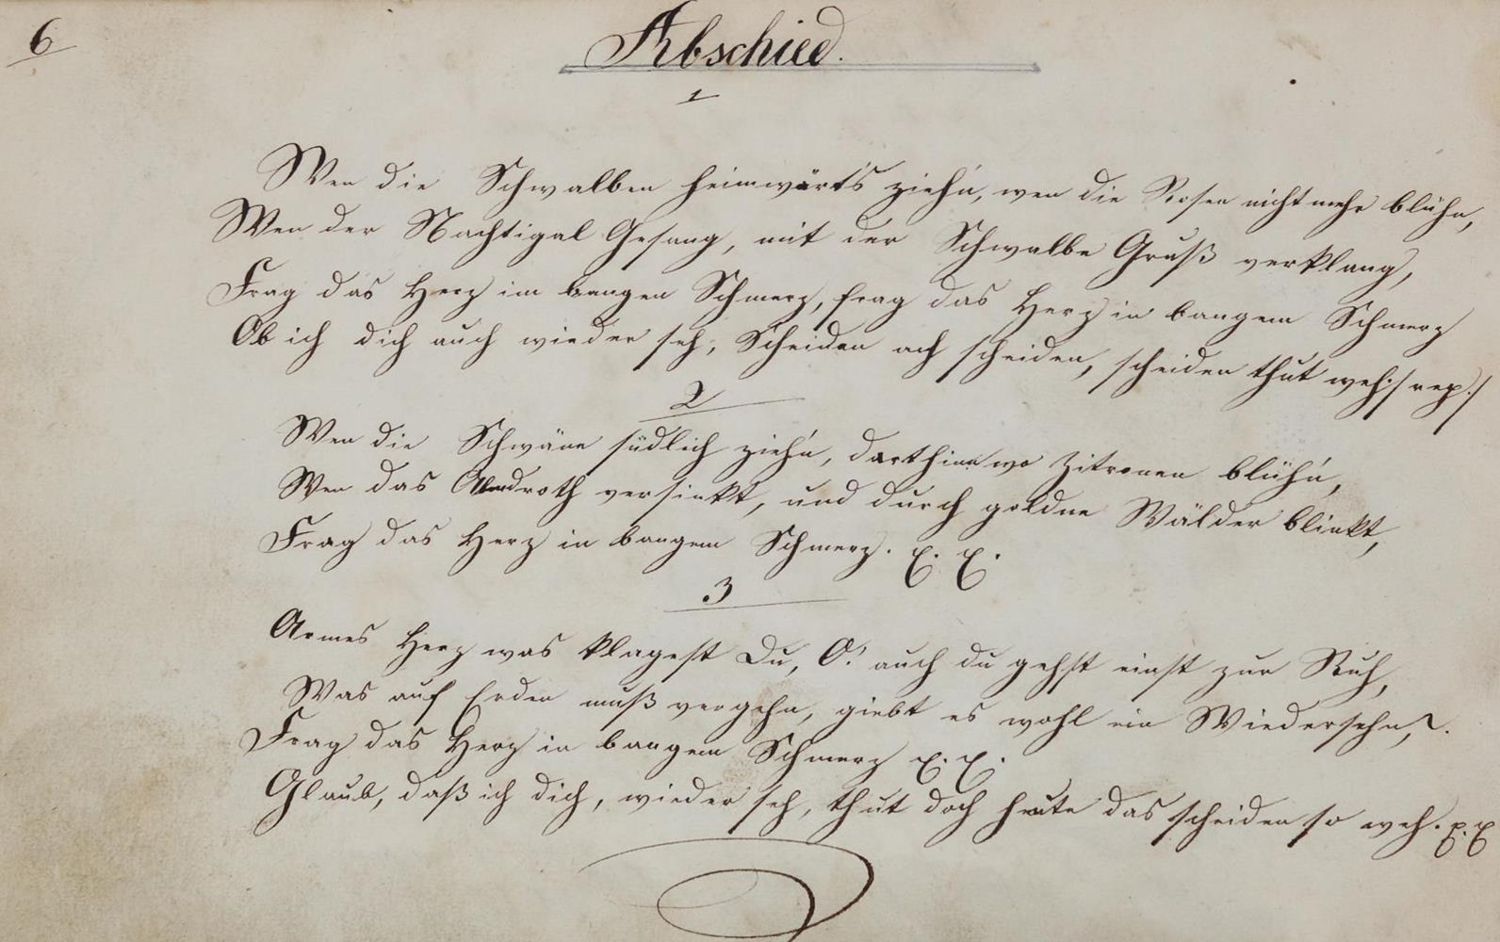 6
Abschied.
1
Wen die Schwalben heimwärts ziehn, wen die Rosen nicht mehr blühn,
Wen der Nachtigal Gesang, mit der Schwalbe Gruß verklang,
Frag das Herz im bangen Schmerz, frag das Herz in bangem Schmerz
Ob ich dich auch wieder seh, Scheiden ach scheiden, scheiden thut weh :/ rep :/
2
Wen die Schwäne südlich zieh'n, darthin wo Zitronen blüh'n,
Wen das Abendroth versinkt, und durch goldne Wälder blinkt,
Frag das Herz in bangem Schmerz. X. X.
3
Armes Herz was klagest Du, O! auch du gehst einst zur Ruh,
Was auf Erden muß vergehn, giebt es wohl ein Wiedersehn,?.
Frag das Herz in bangem Schmerz X. X.
Glaub, daß ich dich, wieder seh, thut doch heute das scheiden so weh. X. X